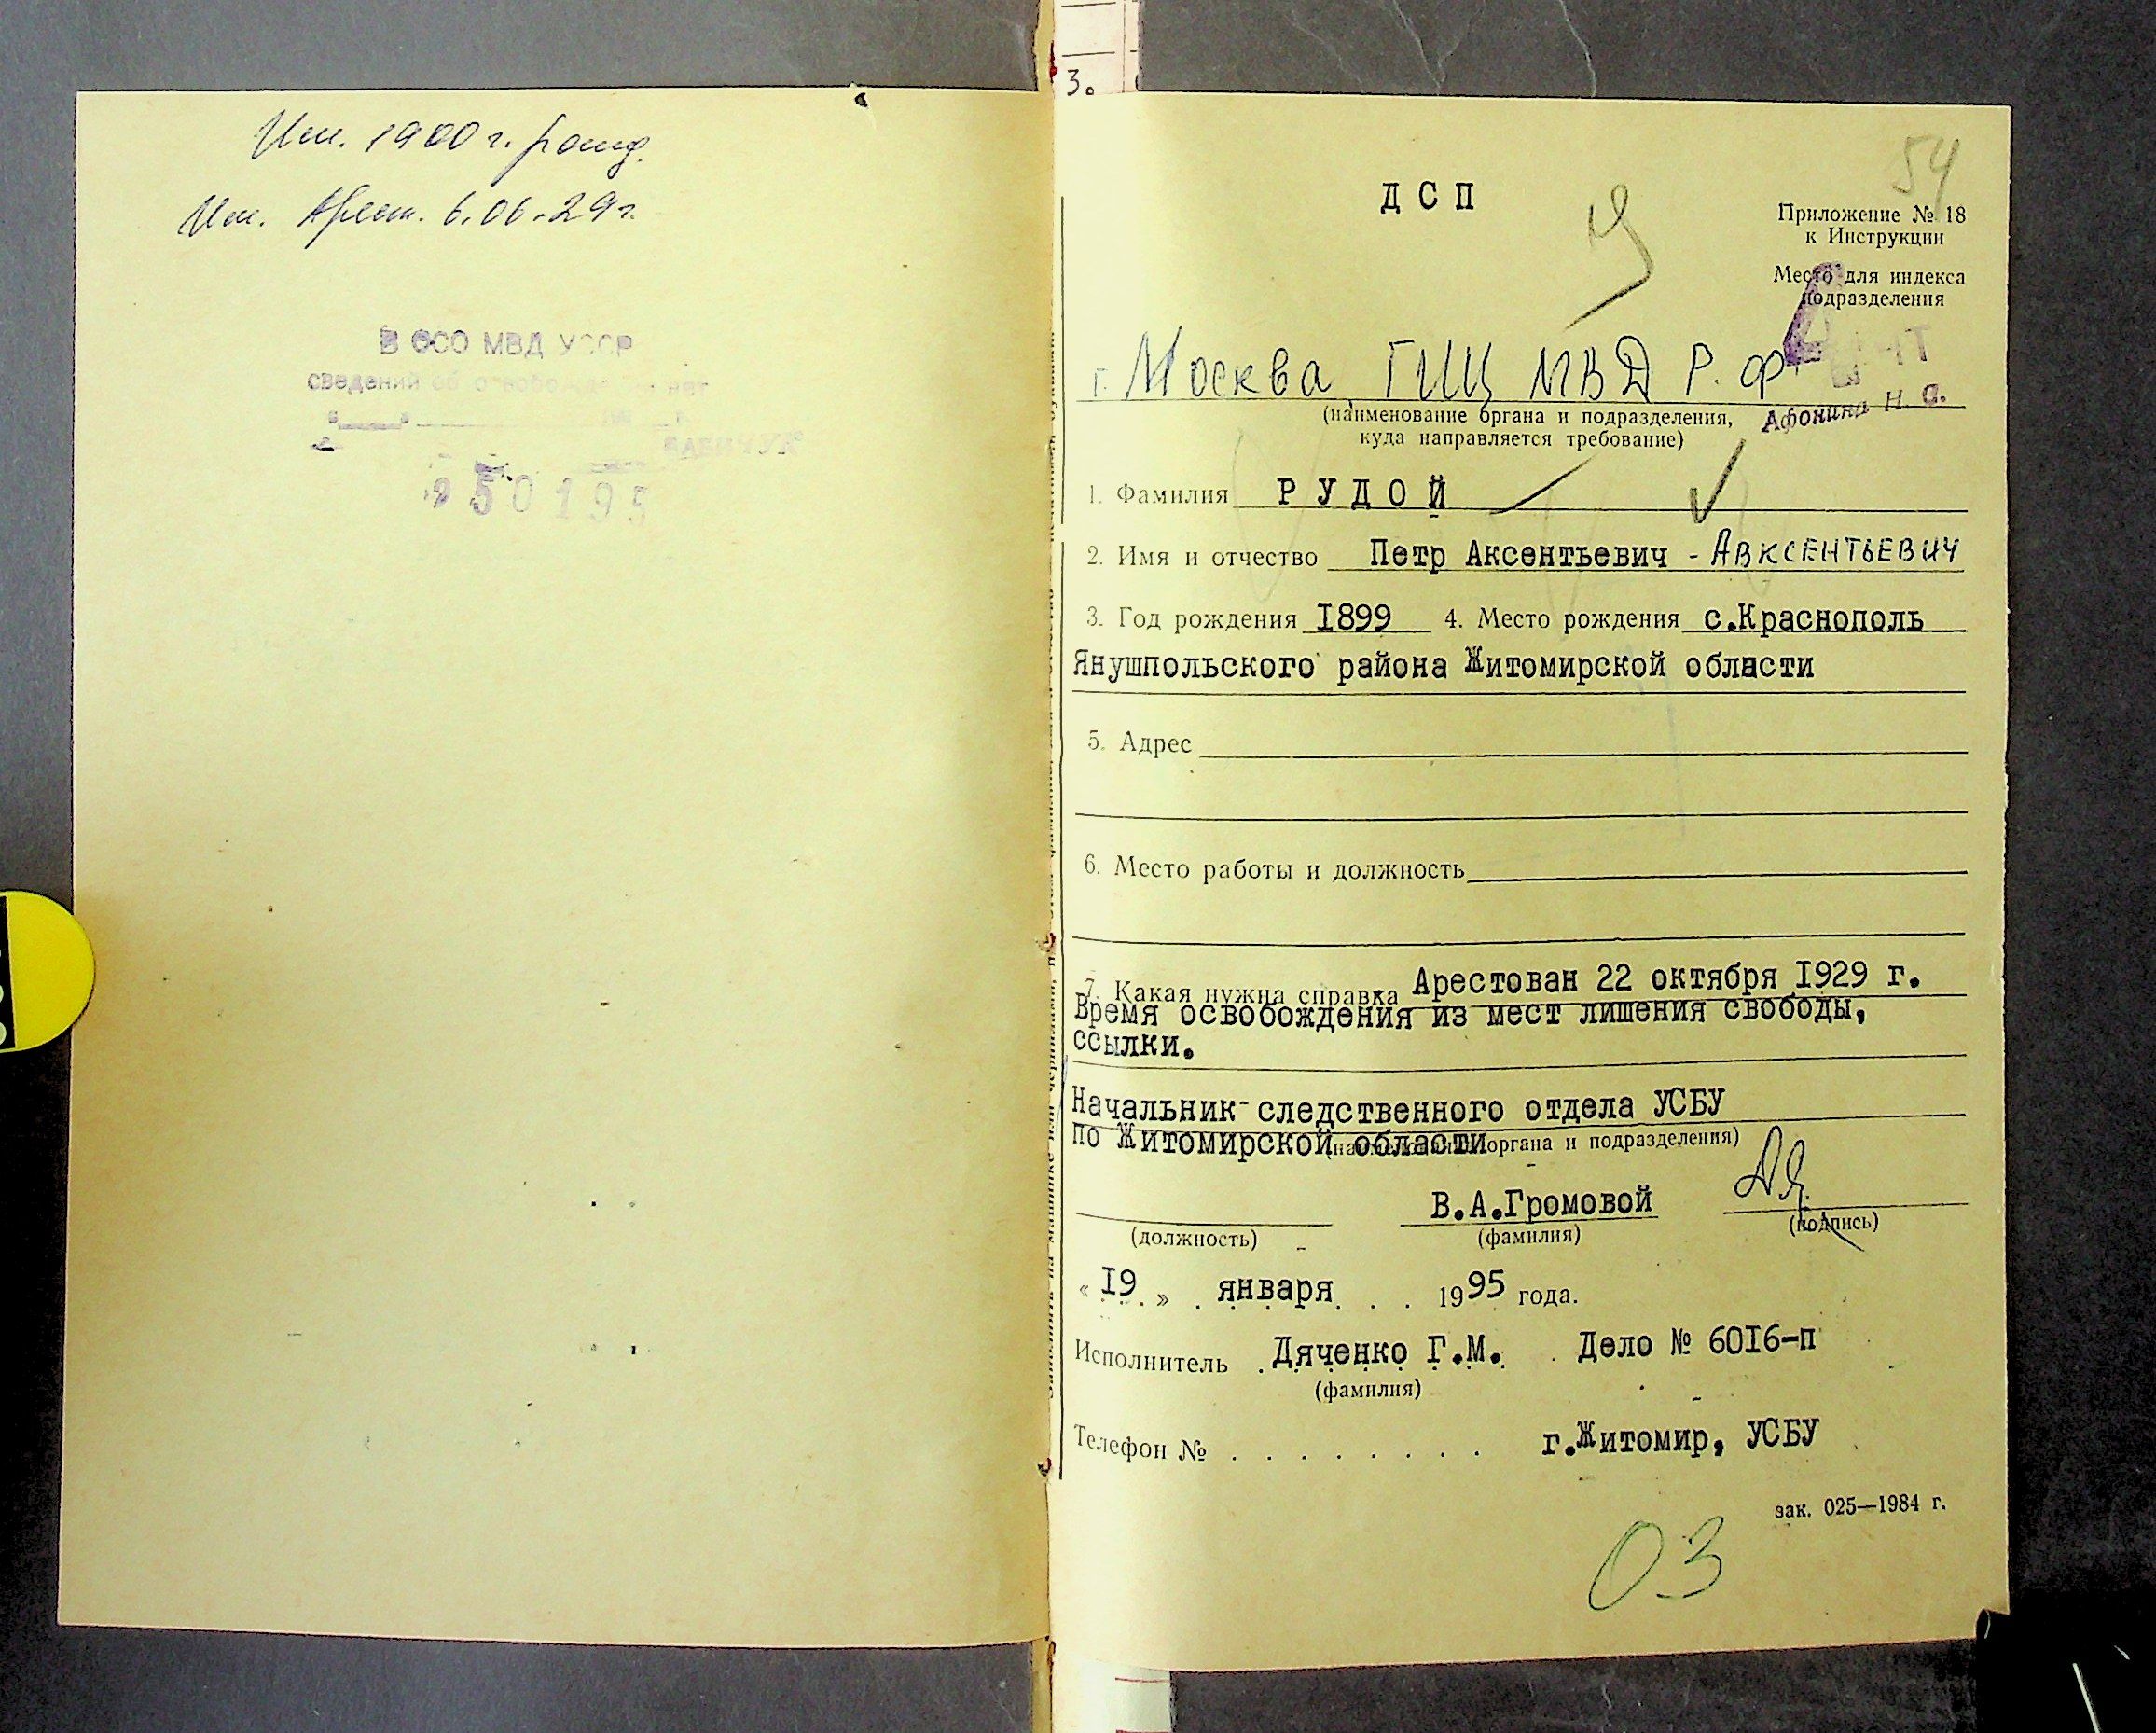 Им. 1900 г. рожд.
Им. Арест. 6.06.29 г.
В ОСО МВД УССР
сведений об освобождении нет
250195
3.
54
ДСП
Приложение № 18
к Инструкции
Место для индекса
подразделения
г. Москва ГИЦ МВД Р.Ф.
Афонина Н. С.
(наименование органа и подразделения,
куда направляется требование)
1. Фамилия РУДОЙ
2. Имя и отчество Петр Аксентьевич - АВКСЕНТЬЕВИЧ
3. Год рождения 1899 4. Место рождения с.Краснополь
Янушпольского района Житомирской области
5. Адрес
6. Место работы и должность
7. Какая нужна справка Арестован 22 октября 1929 г.
Время освобождения из мест лишения свободы,
ссылки.
Начальник следственного отдела УСБУ
по Житомирской области
(наименование органа и подразделения)
В.А.Громовой
(должность) (фамилия) (подпись)
«19» января 1995 года.
Исполнитель Дяченко Г.М. Дело № 6016-п
(фамилия)
Телефон № . . . . . . . . г.Житомир, УСБУ
зак. 025—1984 г.
03